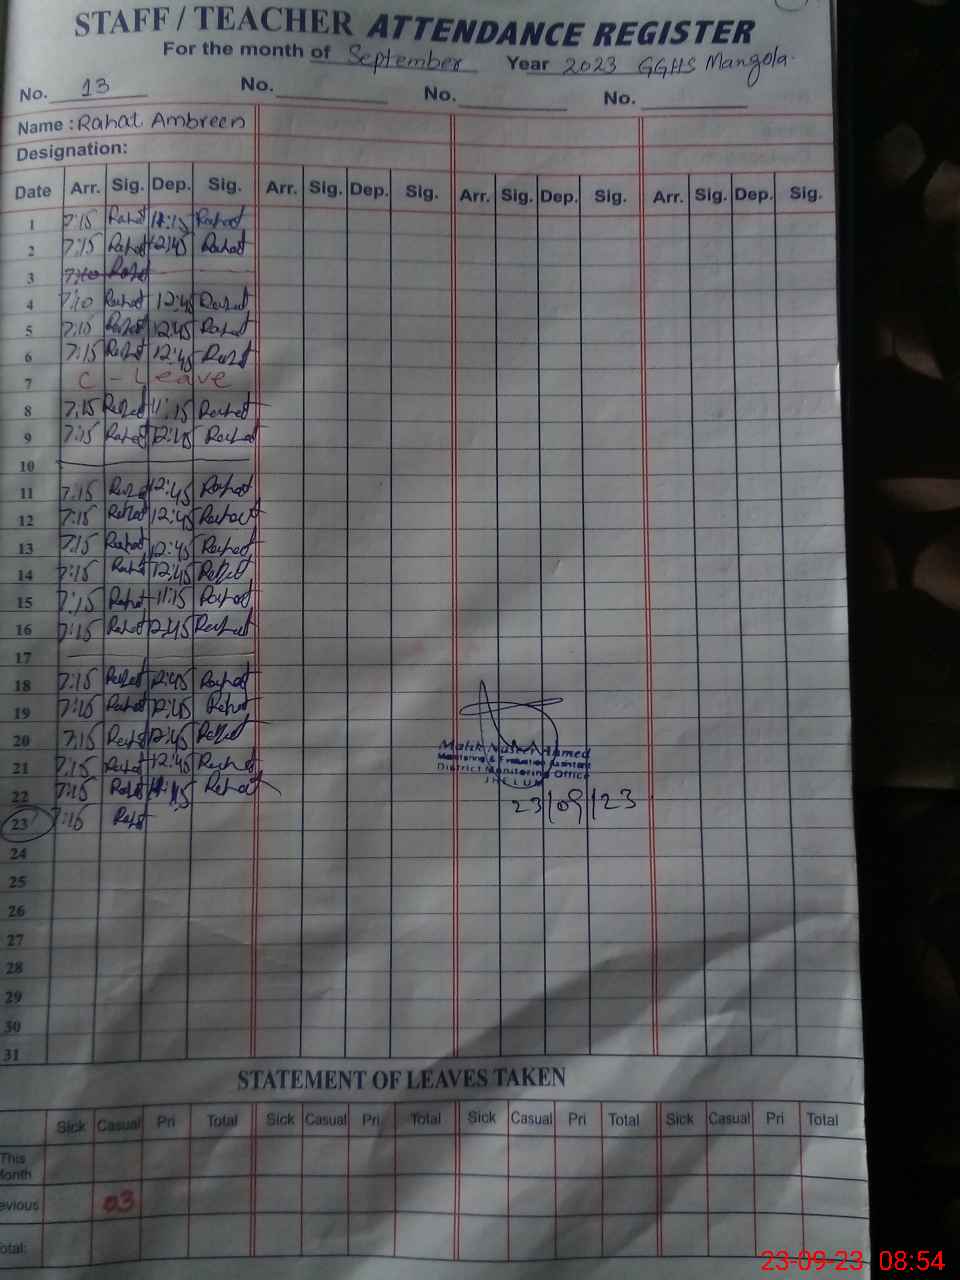 STAFF / TEACHER ATTENDANCE REGISTER
For the month of September Year 2023 GGHS Mangola.
No. 13 No. No. No.
Name : Rahat Ambreen
Designation:
Date Arr. Sig. Dep. Sig. Arr. Sig. Dep. Sig. Arr. Sig. Dep. Sig. Arr. Sig. Dep. Sig.
1 7:15 Rahat 11:15 Rahat
2 7:15 Rahat 12:45 Rahat
3 7:10 Rahat
4 7:10 Rahat 12:45 Rahat
5 7:10 Rahat 12:45 Rahat
6 7:15 Rahat 12:45 Rahat
7 C - Leave
8 7:15 Rahat 11:15 Rahat
9 7:15 Rahat 12:45 Rahat
10
11 7:15 Rahat 12:45 Rahat
12 7:15 Rahat 12:45 Rahat
13 7:15 Rahat 12:45 Rahat
14 7:15 Rahat 12:45 Rahat
15 7:15 Rahat 11:15 Rahat
16 7:15 Rahat 12:45 Rahat
17
18 7:15 Rahat 12:45 Rahat
19 7:15 Rahat 12:45 Rahat
20 7:15 Rahat 12:45 Rahat
21 7:15 Rahat 12:45 Rahat
22 7:15 Rahat 11:15 Rahat
23 7:15 Rahat
Malik Nasir Ahmed
Monitoring & Evaluation Assistant
District Monitoring Office
JHELUM
23/09/23
24
25
26
27
28
29
30
31
STATEMENT OF LEAVES TAKEN
Sick Casual Pri Total Sick Casual Pri Total Sick Casual Pri Total Sick Casual Pri Total
This
Month
evious 03
otal:
23-09-23 08:54